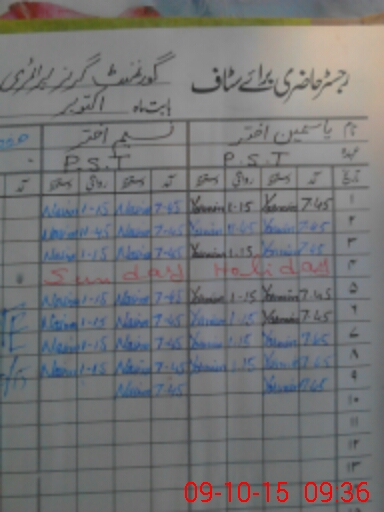 رجسٹر حاضری برائے سٹاف گورنمنٹ گرلز پرائمری
بابت ماہ اکتوبر
نام یاسمین اختر نسیم اختر
عہدہ P.S.T P.S.T
تاریخ آمد دستخط روانگی دستخط آمد دستخط روانگی دستخط آمد
۱ 7-45 Yasmin 1-15 Yasmin 7-45 Nasim 1-15 Nasim
۲ 7-45 Yasmin 11-45 Yasmin 7-45 Nasim 11-45 Nasim
۳ 7-45 Yasmin 1-15 Yasmin 7-45 Nasim 1-15 Nasim
۴ Sunday Holiday
۵ 7-45 Yasmin 1-15 Yasmin 7-45 Nasim 1-15 Nasim
۶ 7-45 Yasmin 1-15 Yasmin 7-45 Nasim 1-15 Nasim
۷ 7-45 Yasmin 1-15 Yasmin 7-45 Nasim 1-15 Nasim
۸ 7-45 Yasmin 1-15 Yasmin 7-45 Nasim 1-15 Nasim
۹ 7-45 Yasmin 7-45 Nasim
۱۰
۱۱
۱۲
۱۳
09-10-15 09:36